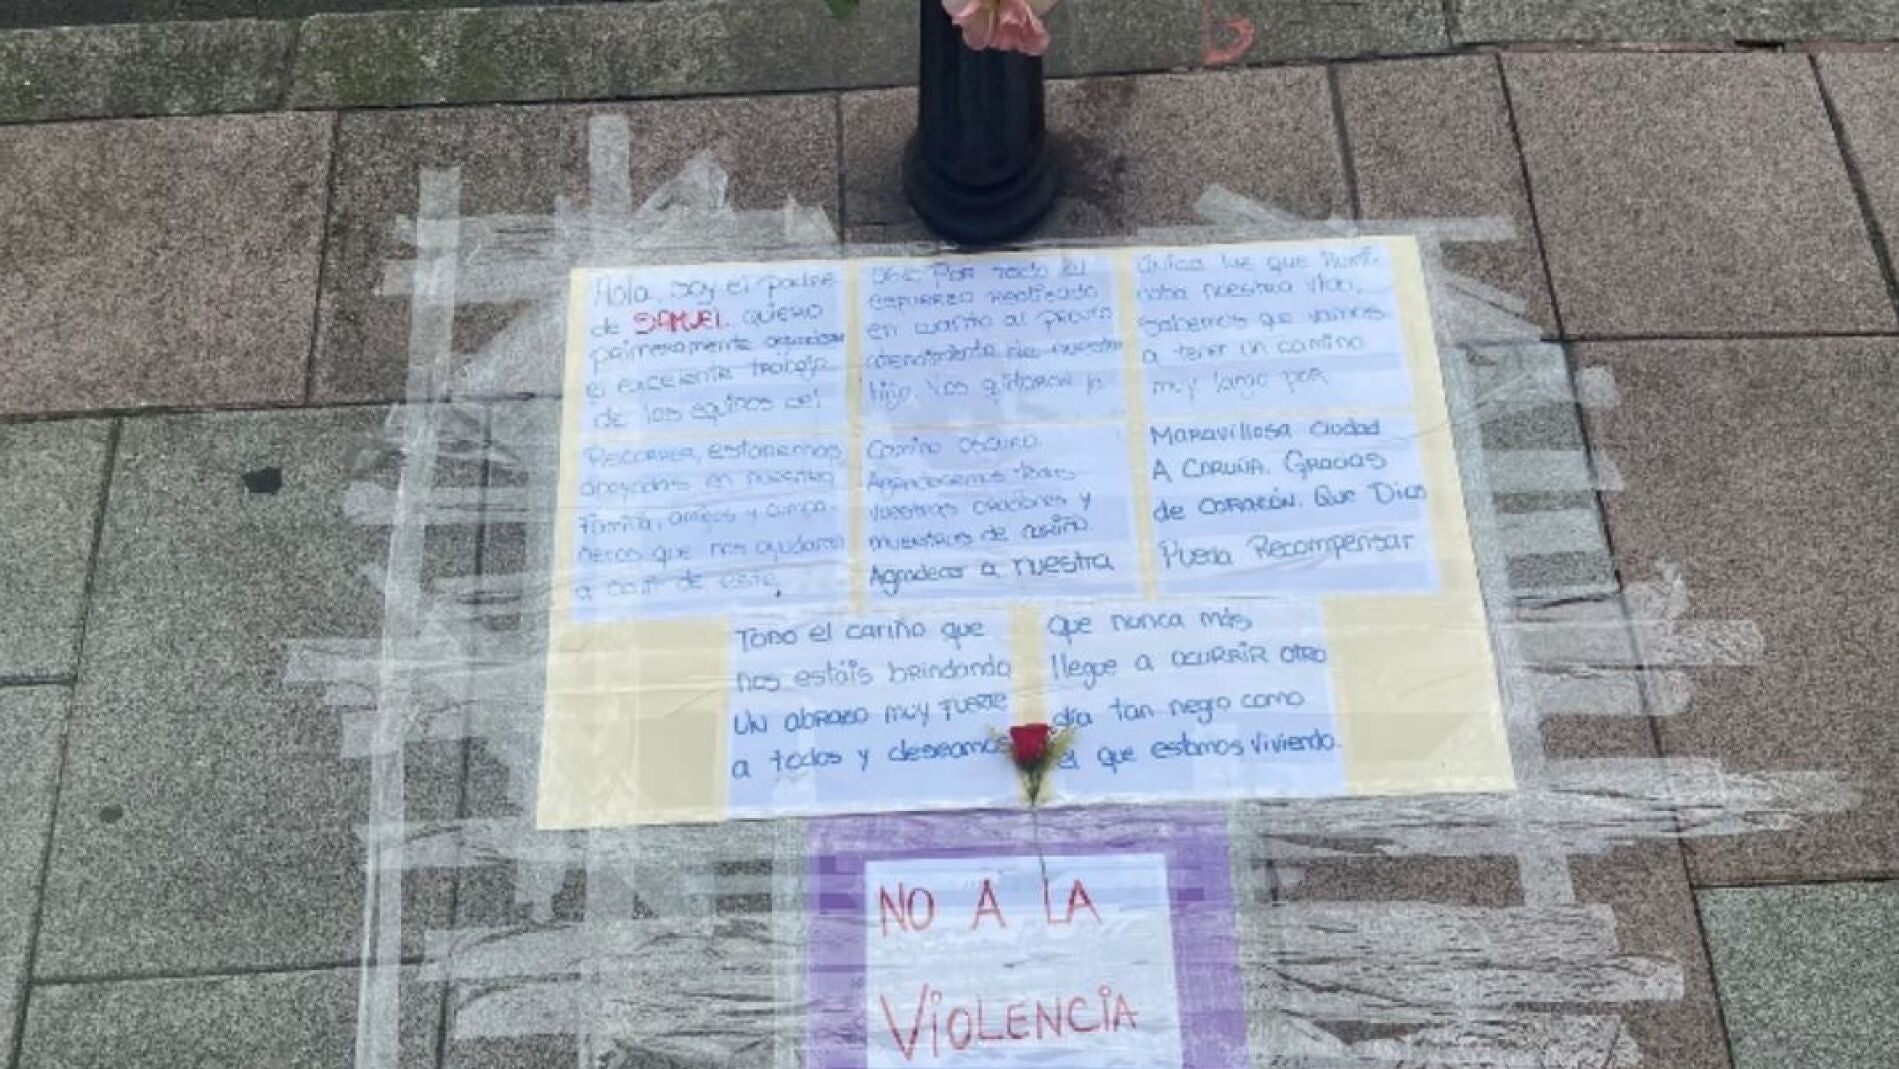 Hola, soy el padre
de SAMUEL. QUIERO
primeramente agradecer
el EXCELENTE trabajo
de los equipos del
061. Por todo el
esfuerzo realizado
en cuanto al pronto
atendimiento de nuestro
hijo. Nos quitaron la
única luz que ilumi-
naba nuestra vida,
Sabemos que vamos
a tener un camino
muy largo por
Recorrer, estaremos
apoyados en nuestra
Familia, amigos y compa-
ñeros que nos ayudaran
a salir de este,
Camino oscuro.
Agradecemos todas
vuestras oraciones y
muestras de cariño.
Agradecer a nuestra
Maravillosa ciudad
A CORUÑA. Gracias
de CORAZÓN. Que Dios
Pueda Recompensar
Todo el cariño que
nos estáis brindando
UN abrazo muy fuerte
a todos y deseamos
Que nunca más
llegue a OCURRIR OTRO
día tan negro como
el que estamos viviendo.
NO A LA
VIOLENCIA